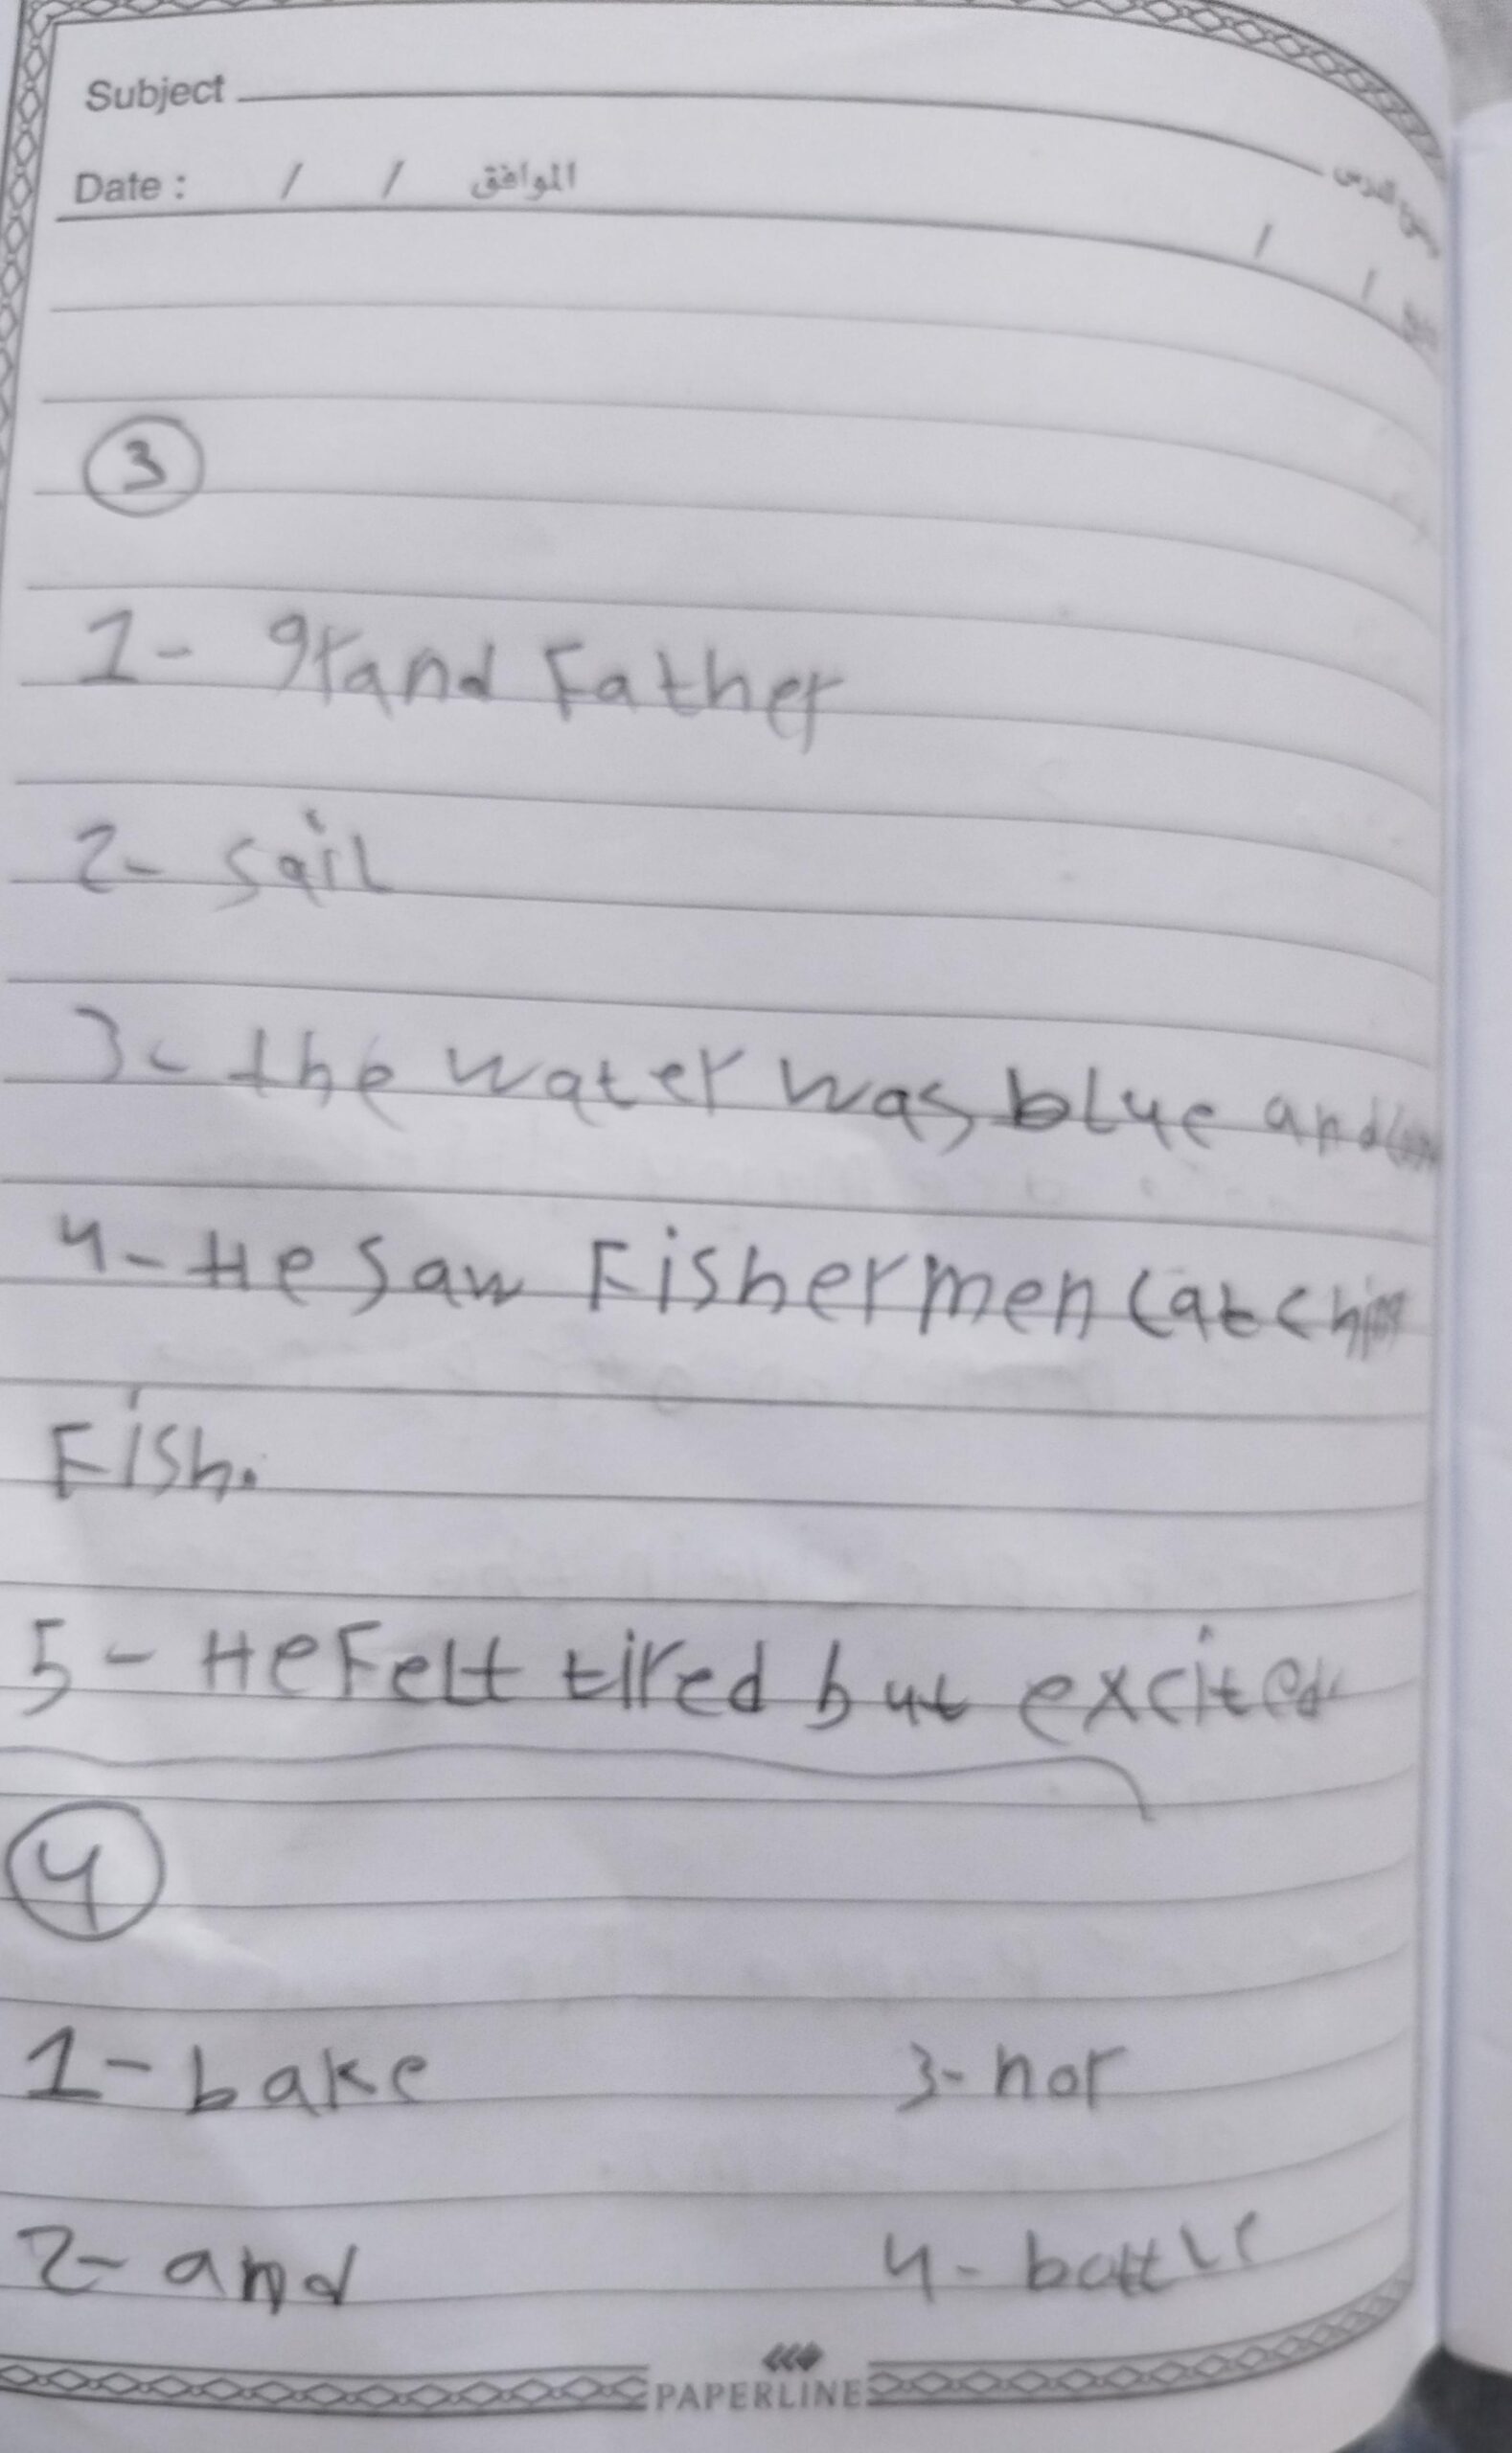 Subject
موضوع الدرس
Date : / / الموافق / /
3
1- grand Father
2- sail
3- the water was blue and
4- He saw Fishermen catching
Fish.
5- He Felt tired but excited.
4
1- bake 3- nor
2- and 4- battle
PAPERLINE